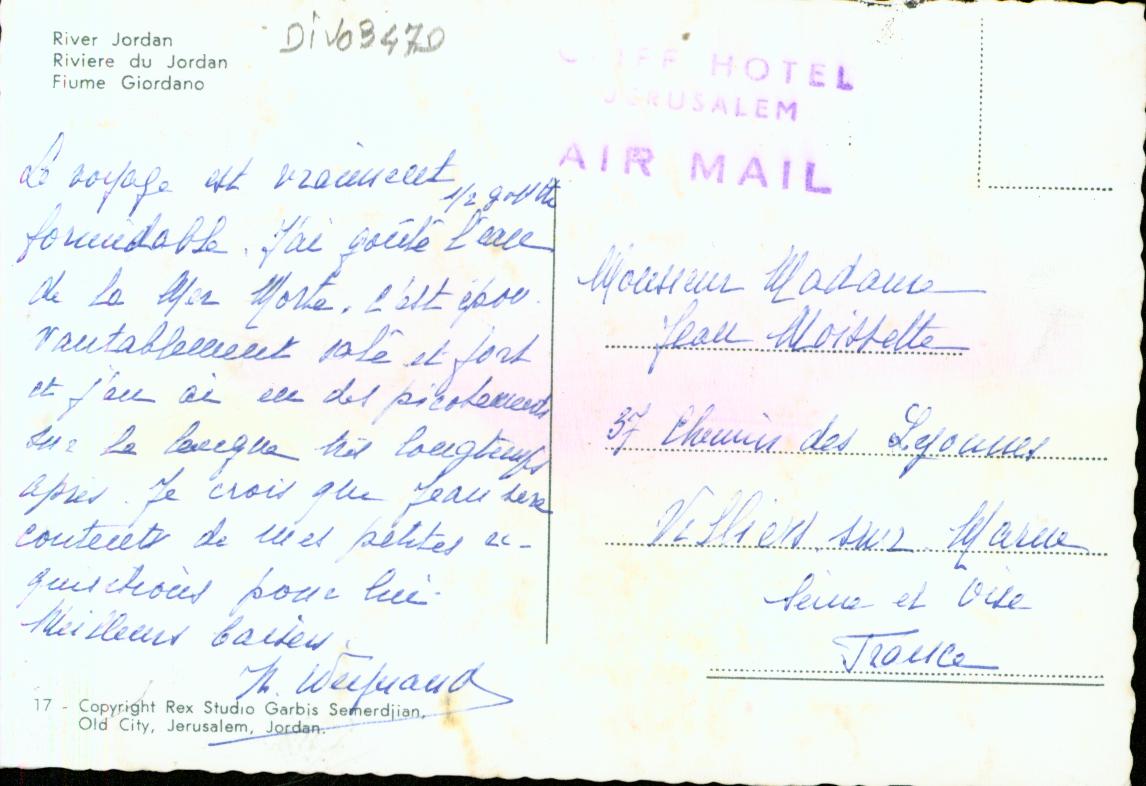 River Jordan
Riviere du Jordan
Fiume Giordano
DIV03470
CLIFF HOTEL
JERUSALEM
AIR MAIL
Le voyage est vraiment
1/2 goutte
formidable. J'ai goûté l'eau
de la Mer Morte. C'est épou-
vantablement salé et fort
et j'en ai eu des picotements
sur la langue très longtemps
après. Je crois que Jean sera
contente de mes petites ac-
quisitions pour lui.
Meilleurs baisers.
17 - Copyright Rex Studio Garbis Semerdjian,
Old City, Jerusalem, Jordan.
Monsieur Madame
Jean Moissette
37 Chemin des Lyonnes
Villiers sur Marne
Seine et Oise
France